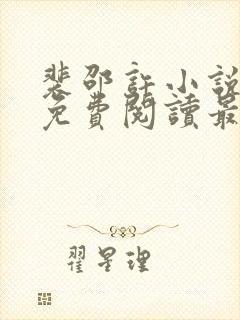 裴邵許小說
免費閱讀最
翟星理